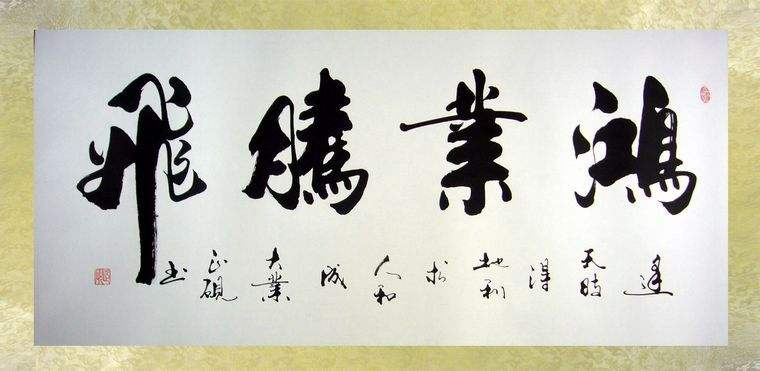 鴻業騰飛
逢天時得地利於人和成大業
正硯书